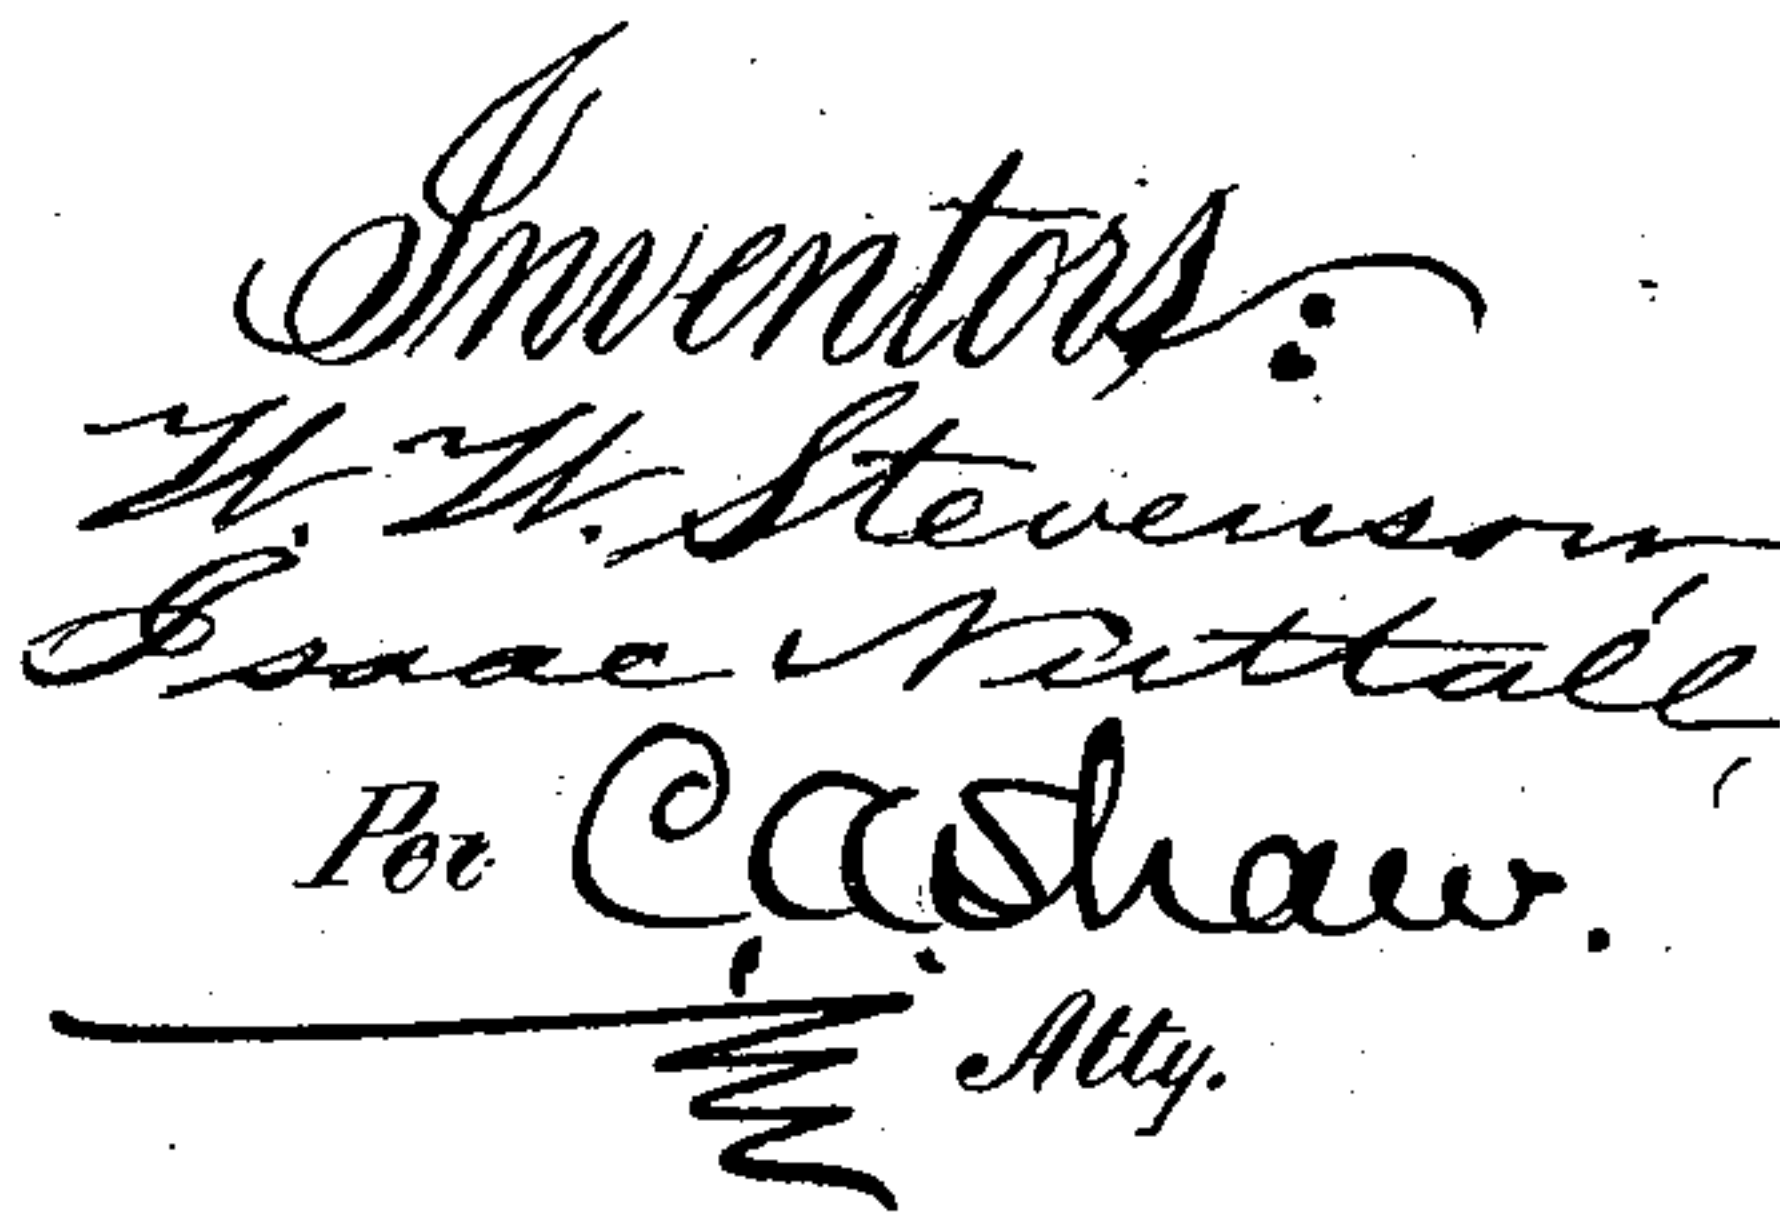 Inventors:
W. W. Stevenson
Isaac Nuttall
Per C. A. Shaw.
Atty.